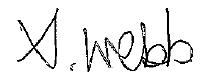 S. Webb